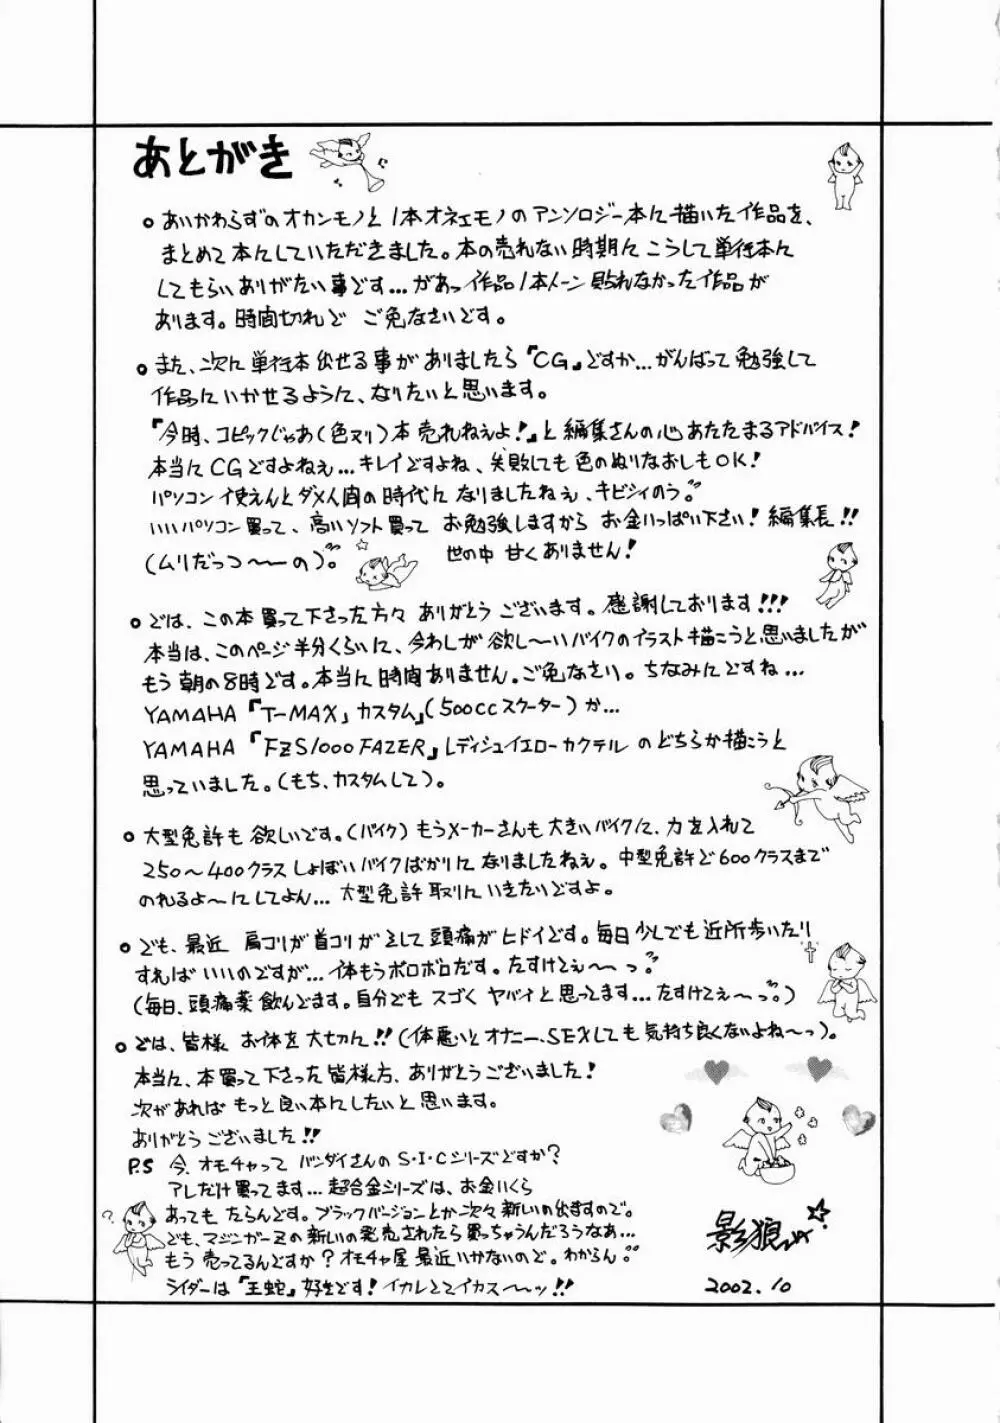 あとがき
あいかわらずのオカンモノと1本オネエモノのアンソロジー本に描いた作品を、
まとめて本にしていただきました。本の売れない時期にこうして単行本に
してもらいありがたい事です…があっ作品1本トーン貼れなかった作品が
あります。時間切れで ご免なさいです。
また、次に単行本出せる事がありましたら『CG』ですか…がんばって勉強して
作品にいかせるように、なりたいと思います。
『今時、コピックじゃあ(色ヌリ)本売れねえよ!』と編集さんの心あたたまるアドバイス!
本当にCGですよねえ…キレイですよね、失敗しても色のぬりなおしもOK!
パソコン使えんとダメ人間の時代になりましたねえ、キビシィのう。
いいパソコン買って、高いソフト買って お勉強しますから お金いっぱい下さい!編集長!!
(ムリだっつ〜〜の)。 世の中 甘くありません!
では、この本買って下さった方々 ありがとうございます。感謝しております!!!
本当は、このページ半分くらいに、今わしが欲し〜いバイクのイラスト描こうと思いましたが
もう朝の8時です。本当に時間ありません。ご免なさい。ちなみにですね…
YAMAHA「T-MAX」カスタム」(500ccスクーター)か…
YAMAHA「FZS1000 FAZER」レディシュイエローカクテル のどちらか描こうと
思っていました。(もち、カスタムして)。
大型免許も欲しいです。(バイク)もうメーカーさんも大きいバイクに、力を入れて
250〜400クラスしょぼいバイクばかりになりましたねえ。中型免許で600クラスまで
のれるよ〜にしてよん…大型免許取りにいきたいですよ。
でも、最近 肩コリが首コリがそして頭痛がヒドイです。毎日少しでも近所歩いたり
すればいいのですが…体もうボロボロだす。たすけてぇ〜っ。
(毎日、頭痛薬飲んでます。自分でも スゴく ヤバイと思ってます…たすけてぇ〜っ。)
では、皆様 お体を大切に!!(体悪いとオナニー、SEXしても気持ち良くないよね〜っ)。
本当に、本買って下さった皆様方、ありがとうございました!
次があれば もっと良い本にしたいと思います。
ありがとうございました!!
P.S 今、オモチャって バンダイさんのS・I・Cシリーズですか?
アレだけ買ってます…超合金シリーズは、お金いくら
あっても たらんです。ブラックバージョンとか次々新しいの出ますので。
でも、マジンガーZの新しいの発売されたら買っちゃうんだろうなあ…
もう売ってるんですか?オモチャ屋最近いかないので。わからん。
ライダーは『王蛇』好きです!イカレててイカス〜ッ!!
?
影狼
2002.10